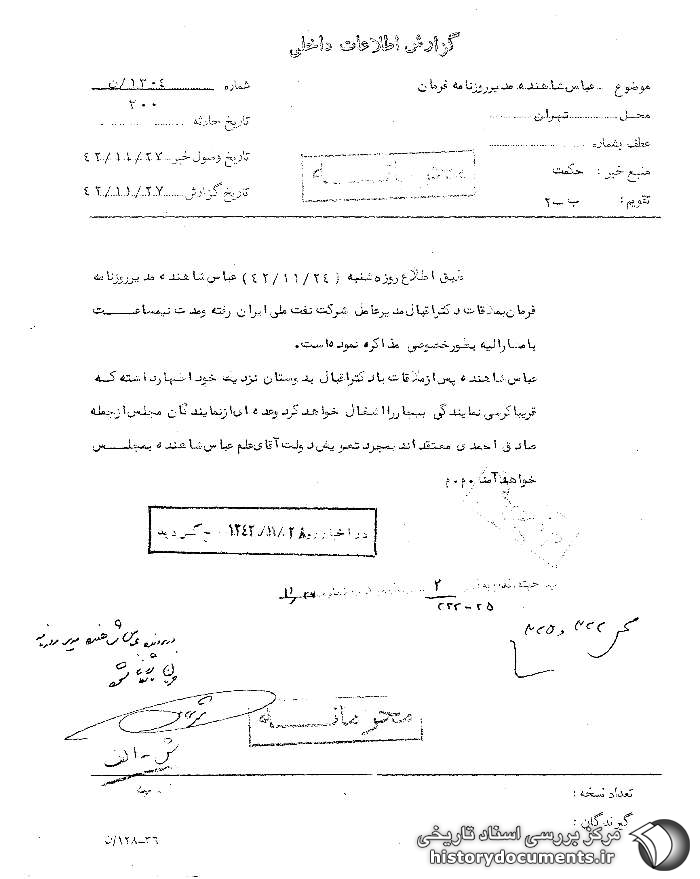 گزارش اطلاعات داخلی
موضوع : عباس شاهنده مدیر روزنامه فرمان
شماره ۱۳۰۴/ن
۲۰۰
محل تهران
تاریخ حادثه
عطف بشماره
تاریخ وصول خبر ۴۲/۱۱/۲۷
منبع خبر : حکمت
تاریخ گزارش ۴۲/۱۱/۲۷
محرمانه
تقویم : ب-۲
طبق اطلاع روز ه شنبه (۴۲/۱۱/۲۴) عباس شاهنده مدیر روزنامه
فرمان بملاقات دکتر اقبال مدیرعامل شرکت نفت ملی ایران رفته ومدت نیمساعت
با مشارالیه بطور خصوصی مذاکره نموده است.
عباس شاهنده پس از ملاقات با دکتر اقبال به دوستان نزدیک خود اظهار داشته که
قریبا کرسی نمایندگی بیمار را اشغال خواهد کرد وعده ای از نمایندگان مجلس از جمله
صادق احمدی معتقدند بمجرد تعویض دولت آقای علم عباس شاهنده بمجلس
خواهد آمد م.م
در اخبار روز ۱۳۴۲/۱۱/۲۸ درج گردید
۲
۲۳۲-۲۵
۳۲۲ و ۳۲۵
در پرونده عباس شاهنده مدیر روزنامه
محرمانه
ش-الف
تعداد نسخه :
گیرندگان :
۳۶-۱۲۸/ن
مرکز بررسی اسناد تاریخی
historydocuments.ir